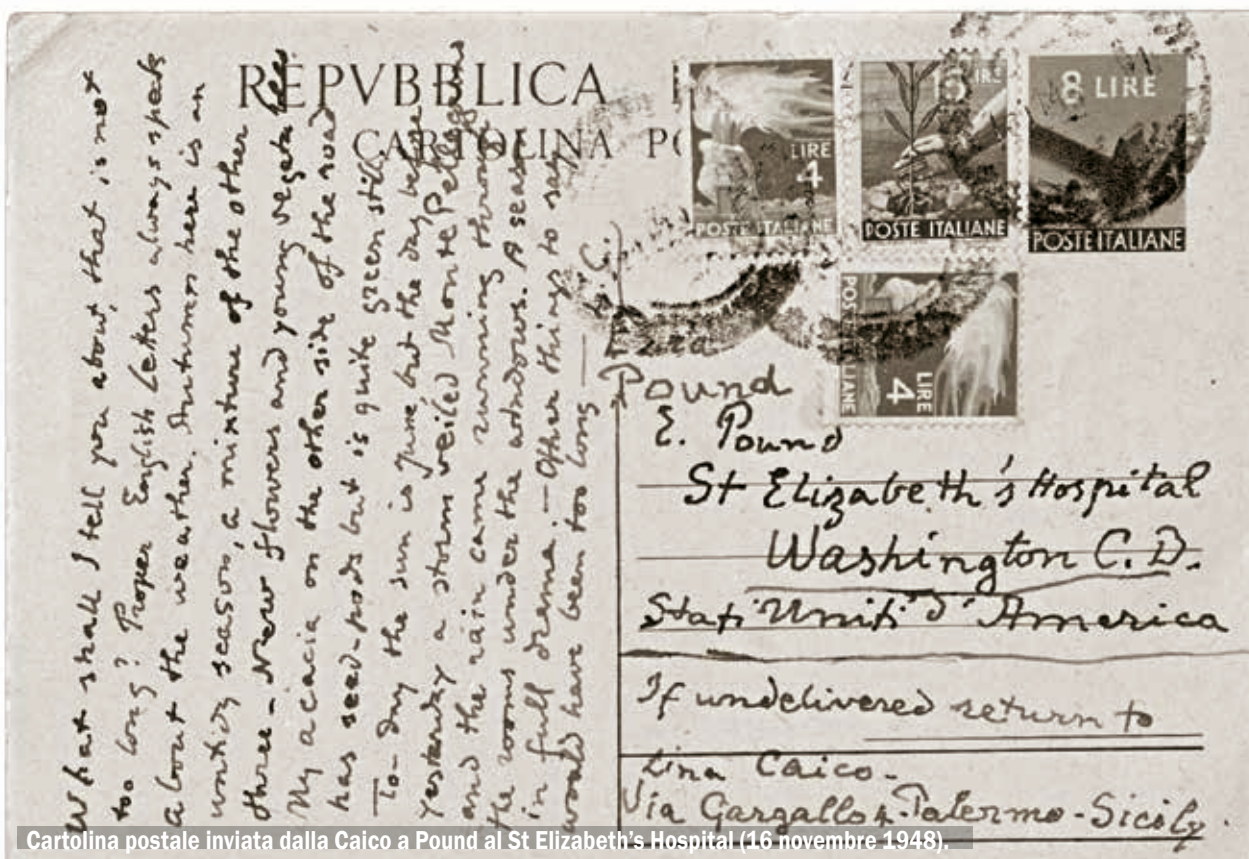 REPVBBLICA I
CARTOLINA PO
LIRE
4
POSTE ITALIANE
15 LIRE
POSTE ITALIANE
8 LIRE
POSTE ITALIANE
LIRE
4
POSTE ITALIANE
What shall I tell you about that is not
too long? Proper English letters always speak
about the weather. Autumn here is an
untidy season, a mixture of the other
three - New flowers and young vegetables
My acacia on the other side of the road
has seed-pods but is quite green still
To-day the sun is June but the day before
yesterday a storm veiled Monte Pellegrino
and the rain came running through
the rooms under the windows. A season
in full drama. — Other things to say
would have been too long — L. C.
Ezra
Pound
E. Pound
St Elizabeth's Hospital
Washington C.D.
Stati Uniti d'America
If undelivered return to
Lina Caico -
Via Gargallo 4 - Palermo - Sicily
Cartolina postale inviata dalla Caico a Pound al St Elizabeth's Hospital (16 novembre 1948).